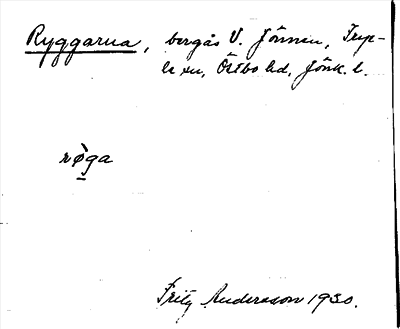 Ryggarna, bergås V. Jönnen, Tryp-
le sn, Östbo hd, Jönk. l.
røga
Fritz Andersson 1930.